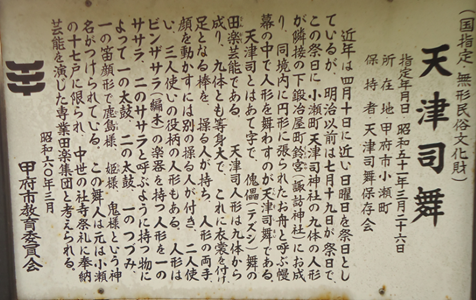 (国指定 無形民俗文化財)
天津司舞
指定年月日 昭和五十一年三月二十六日
所在地 甲府市小瀬町
保持者 天津司舞保存会
近年は四月十日に近い日曜日を祭日とし
ているが、明治以前は七月十九日が祭日で、
この祭日に小瀬町天津司神社の九体の人形
が隣接の下鍛冶屋町鈴宮(諏訪神社)にお成
り、同境内に円形に張られたお舟と呼ぶ幔
幕の中で人形を舞わすのが天津司舞である。
天津司とはあて字で、傀儡(デズシ)舞の
田楽芸能である。 天津司人形は九体から
成り、九体とも等身大で、これに衣裳を付け、
足となる棒を、操る人が持ち、人形の両手、
顔を動かすには別の操る人が付き、二人使
い、三人使いの役柄の人形もある。人形は
ビンザサラ(編木)の楽器を持つ人形を一の
ササラ、二のササラと呼ぶように持つ物に
よって一の太鼓、二の太鼓、一のつづみ、
一の笛顔形で鹿島様、姫様、鬼様という神
名がつけられている。この舞人は元は小瀬
の十七戸に限られ、中世の社寺祭礼に奉納
芸能を演じた専業田楽集団と考えられる。
昭和六〇年三月
甲府市教育委員会